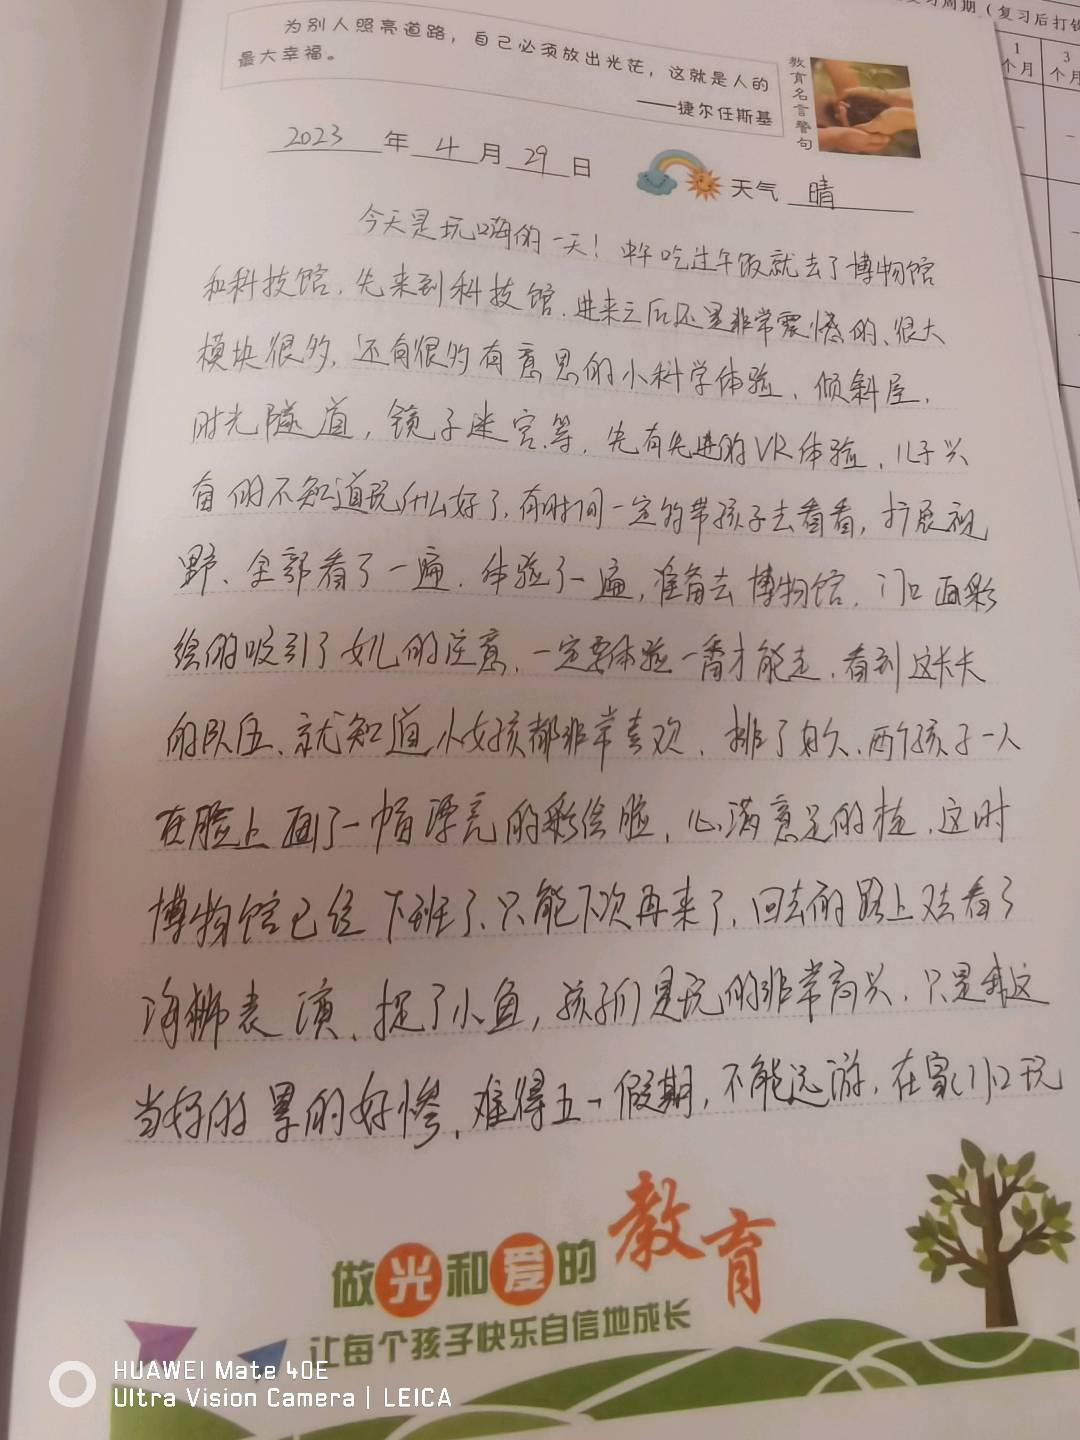 复习周期（复习后打钩
1
个月
3
个月
为别人照亮道路，自己必须放出光芒，这就是人的
最大幸福。
——捷尔任斯基
教育名言警句
2023 年 4 月 29 日
天气 晴
今天是玩嗨的一天！中午吃过午饭就去了博物馆
和科技馆，先来到科技馆，进来之后还是非常震撼的、很大
模块很多，还有很多有意思的小科学体验、倾斜屋，
时光隧道，镜子迷宫等，先有先进的VR体验，儿子兴
奋的不知道玩什么好了，有时间一定的带孩子去看看，扩展视
野、全部看了一遍，体验了一遍，准备去博物馆，门口画彩
绘的吸引了女儿的注意，一定要体验一番才能走，看到这长长
的队伍、就知道小女孩都非常喜欢，排了好久、两个孩子一人
在脸上画了一幅漂亮的彩绘脸，心满意足的走，这时
博物馆已经下班了、只能下次再来了，回去的路上又去看了
海狮表演、捉了小鱼，孩子们是玩的非常高兴，只是我这
当妈的累的好惨，难得五一假期，不能远游，在家门口玩
做光和爱的教育
让每个孩子快乐自信地成长
HUAWEI Mate 40E
Ultra Vision Camera | LEICA